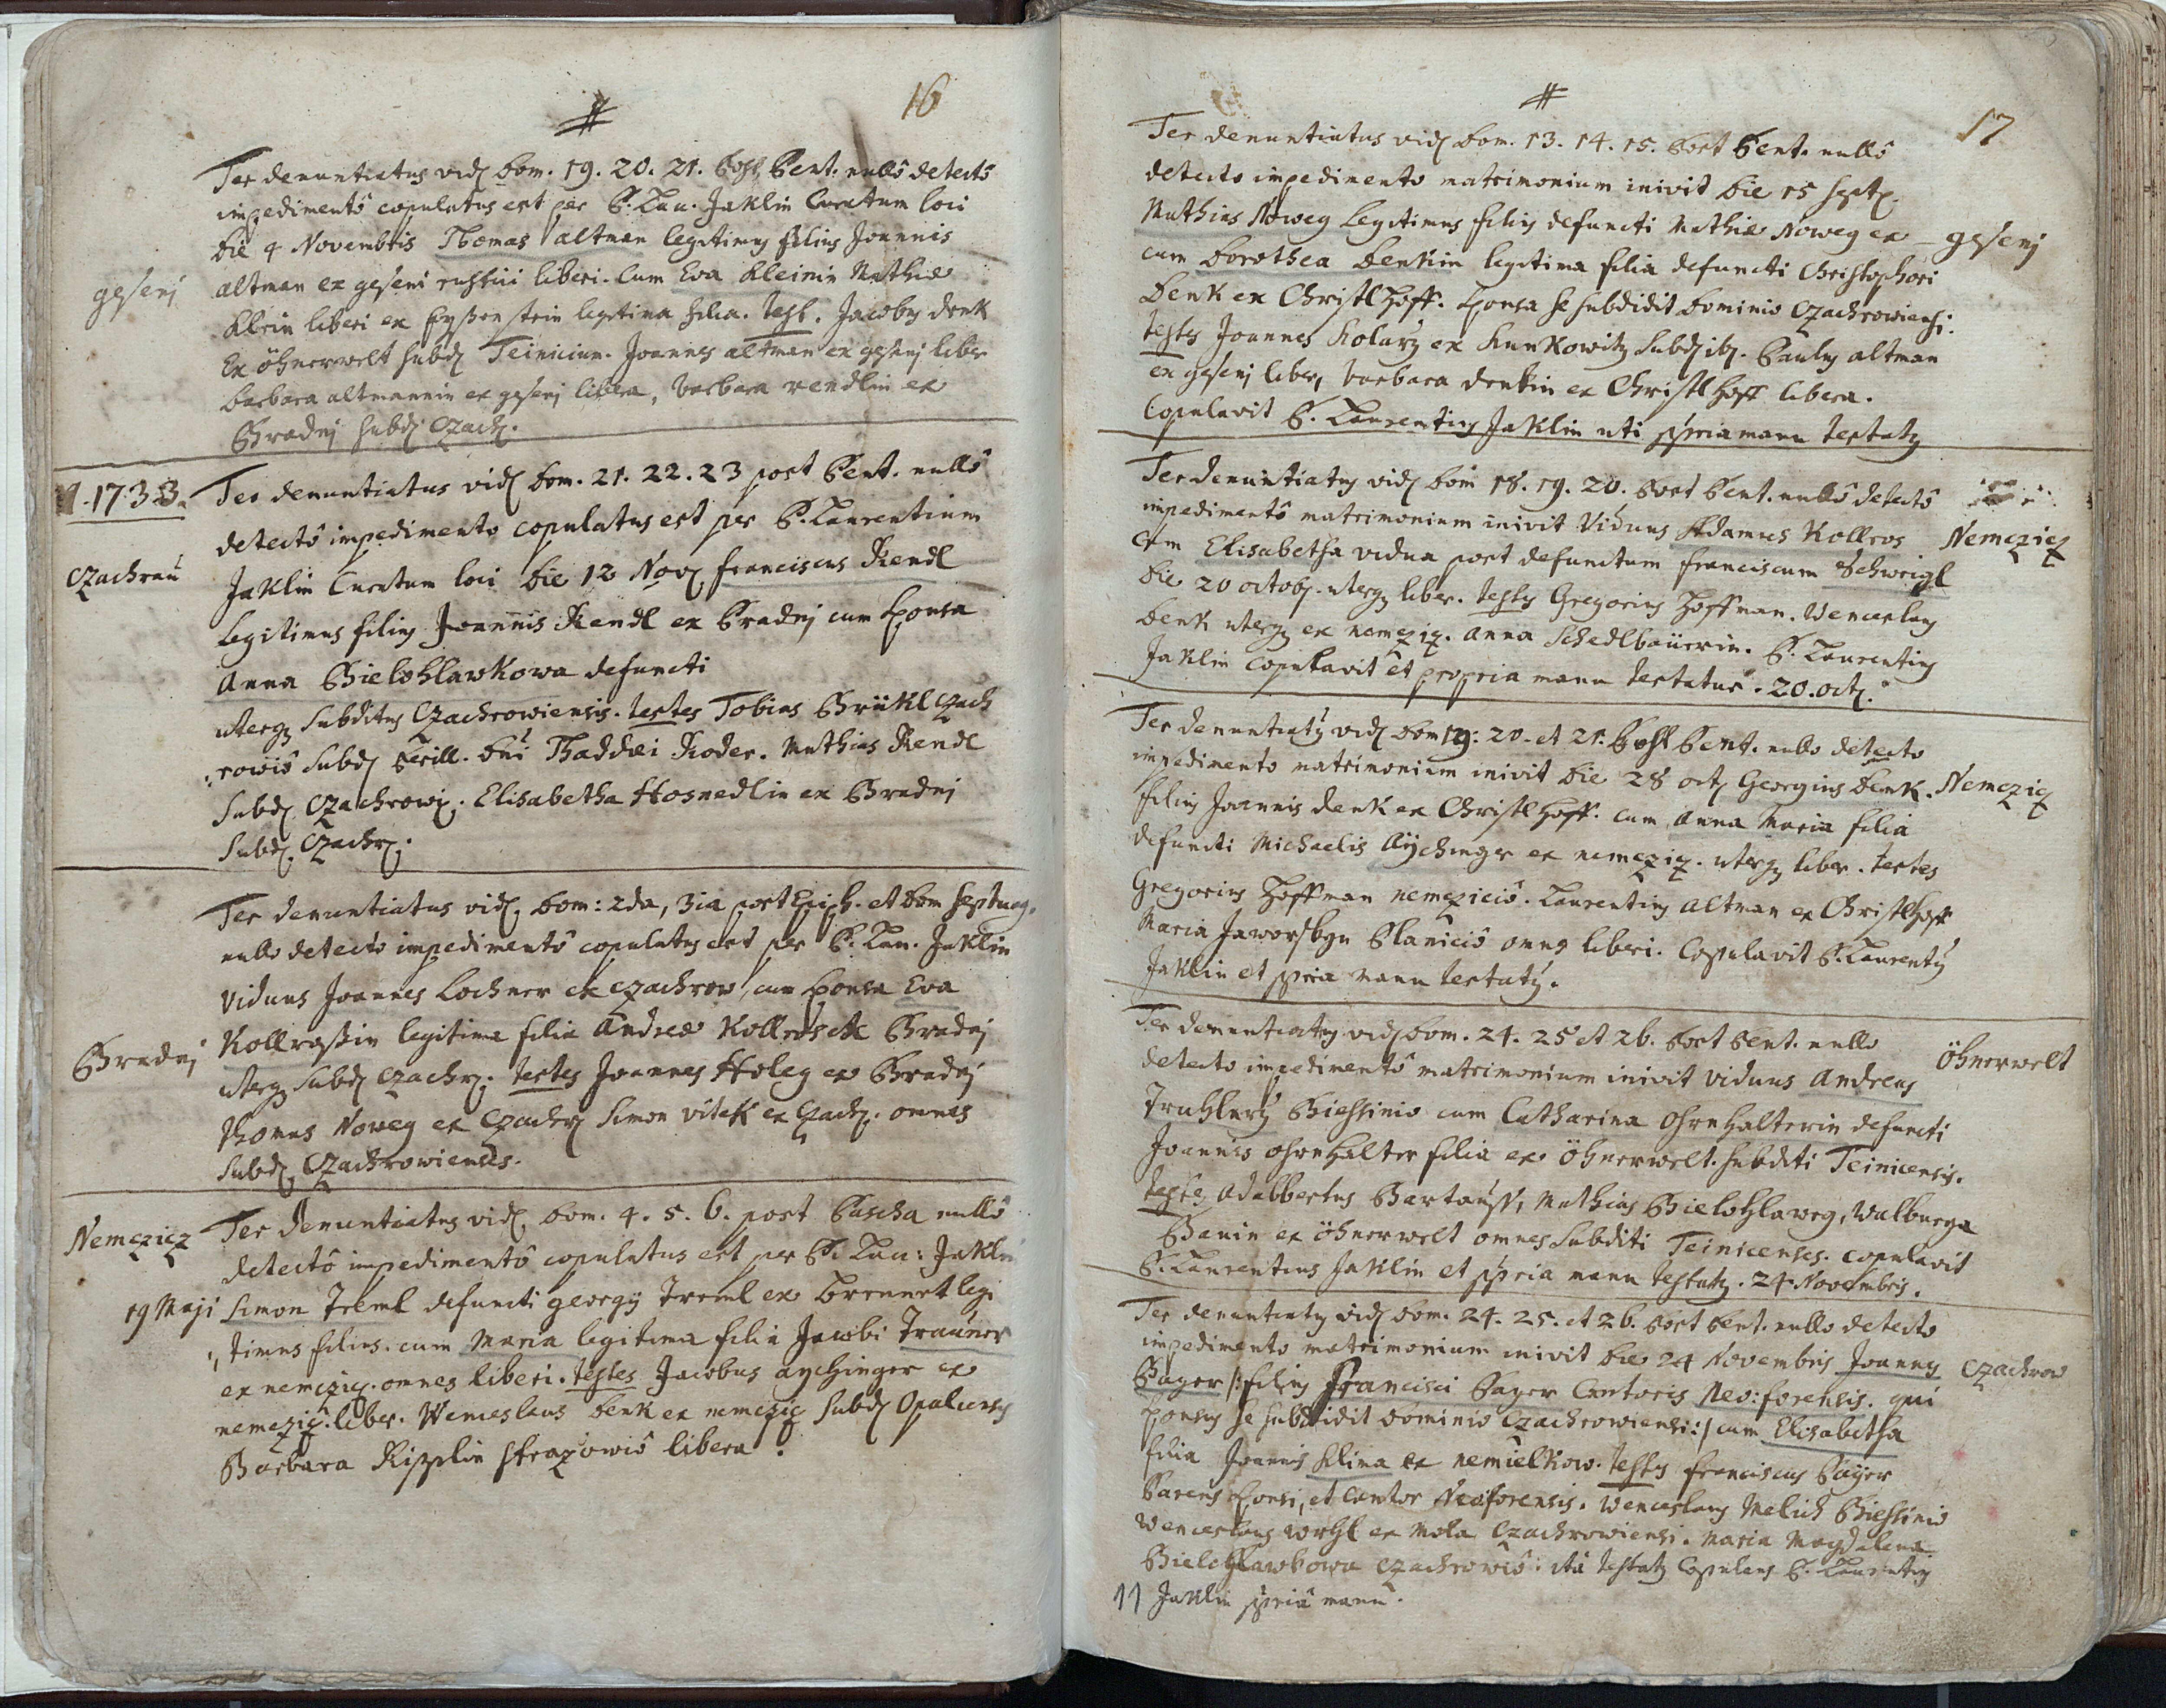 16
Ter denuntiatus vid. Dom. 19. 20. 21. Post Pent. nullô detectô
impedimentô copulatus est per P. Lau. Jaklin Curatum loci
die 4 Novembris Thomas altman legitimus filius Joannis
gesenj
altman ex geseni rustici liberi. Cum Eva Kleinin Mathiæ
Klein liberi ex Eysenstein legitima filia. Test. Jacobus denk
Ex öhnerwelt subd. Teinicium. Joannes altman ex gesenj liber
barbara altmannin ex gesenj libera, barbara rendlin ex
Bradnj subd. Czach.
1733.
Ter denuntiatus vid. Dom. 21. 22. 23 post Pent. nullô
detectô impedimento copulatus est per P. Laurentium
Czachrau
Jaklin Curatum loci die 12 Nov. franciscus Rendl
legitimus filius Joannis Rendl ex Bradnj cum sponsa
Anna Bielohlawkowa defuncti
uterq. subditus Czachrowiensis. testes Tobias Brükl Czach
rowiô subd. perill. dni Thaddæi Koder. Mathias Rendl
subd. Czachrowi. Elisabetha Hosnedlin ex Bradnj
subd. Czachr.
Ter denuntiatus vid. Dom: 2da, 3ia post Epiph. et Dom septuag.
nullo detecto impedimentô copulatus est per P. Lau. Jaklin
viduus Joannes Lochner ex Czachrow, cum sponsa Eva
Bradnj
Kollroßin legitima filia Andreæ Kollros ex Bradnj
uterq. subd. Czachr. testes Joannes Holeg ex Bradnj
thomas Noweg ex Czachr. Simon vitek ex Czach. omnes
subd. Czachrowienses.
Nemeziez
Ter Denuntiatus vid. Dom. 4. 5. 6. post Pascha nullô
detectô impedimentô copulatus est per P. Lau: Jaklin
19 Maji
Simon Treml defuncti georgÿ Treml ex Brennet legi
timus filius. cum Maria legitima filia Jacobi Trauner
ex nemeziez. omnes liberi. testes Jacobus aychinger ex
nemeziz. liber. Wenceslaus Denk ex nemeziz subd. Opalcens
Barbara Ripplin strazowiô libera.
17
Ter denuntiatus vid. Dom. 13. 14. 15. Post Pent. nullô
detecto impedimento matrimonium inivit die 15 Sept.
Mathias Noweg Legitimus filius defuncti Mathiæ Noweg ex gesenj
cum Dorothea Denkin legitima filia defuncti Christophori
Denk ex Christlhoff. Sponsa se subdidit Dominio Czachrowiensi.
testes Joannes Kolarz ex Kunkowitz subd. ib. Paulus altman
ex gesenj liber, barbara denkin ex Christlhoff libera.
Copulavit P. Laurentius Jaklin uti ppria manu testatur
Ter denuntiatus vid. Dom 18. 19. 20. Post Pent. nullô detectô
impedimentô matrimonium inivit Viduus Adamus Kollros Nemeziez
Cum Elisabetha vidua post defunctum franciscum Schweigl
die 20 octob. uterq. liber. testes Gregorius Hoffman. Wenceslaus
Denk uterq. ex nemeziz. anna Schedlbaüerin. P. Laurentius
Jaklin copulavit et propria manu testatur. 20. oct.
Ter denuntiatus vid. Dom 19: 20. et 21. Post Pent. nullo detecto
impedimento matrimonium inivit die 28 oct. Georgius Denk. Nemeziez
filius Joannis denk ex Christlhoff. cum Anna Maria filia
defuncti Michaelis Aÿchinger ex nemeziz. uterq. liber. testes
Gregorius Hoffman nemeziciô. Laurentius altman ex Christlhoff
Maria Jaworskyn Planiciô omnes liberi. Copulavit P. Laurentius
Jaklin et ppria manu testatur.
Ter denuntiatus vid. Dom. 24. 25 et 26. Post Pent. nullo
detecto impedimentô matrimonium inivit viduus Andreas öhnerwelt
Truhlarz Bieschinio cum Catharina Ohrnhalterin defuncti
Joannis ohrnhalter filia ex öhnerwelt. subditi Teinicensis.
teste Adalbertus Bartauss, Mathias Bielohlaweg, Walburga
Banin ex öhnerwelt omnes subditi Teinicenses. copulavit
P. Laurentius Jaklin et ppria manu testatur. 24. Novembris.
Ter denuntiatus vid. Dom. 24. 25. et 26. Post Pent. nullo detecto
impedimento matrimonium inivit die 24 Novembris Joannes Czachrow
Payer /: filius Francisci Payer Cantoris Neo:forensis. qui
sponsus se subdidit Dominio Czachrowiensi :/ cum Elisabetha
filia Joannis Klima ex nemielkow. testes franciscus Payer
Parens sponsi, et Cantor Neoforensis. Wenceslaus Melich Bieschinio
Wenceslaus Wrhl ex Mola Czachrowiensi. Maria Magdalena
Bielohlawkowa Czachrowiô: ita testatur Copulans P. Laurentius
11 Jaklin ppriâ manu.